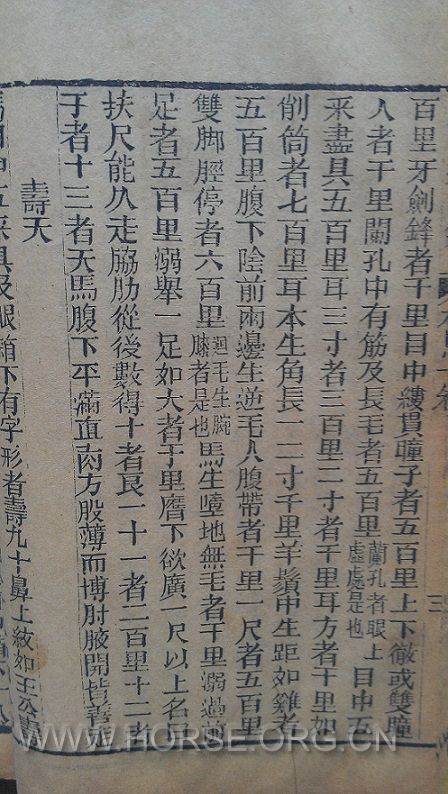 百里牙劍鋒者千里目中縷貫瞳子者五百里上下徹或雙瞳
人者千里闌孔中有筋及長毛者五百里蘭孔者眼上虛處是也目中五
采盡具五百里耳三寸者三百里二寸者千里耳方者千里如
削筒者七百里耳本生角長一二寸千里羊鬚中生距如雞者
五百里腹下陰前兩邊生逆毛入腹帶者千里一尺者五百里
雙脚脛停者六百里廻毛生腕膝者是也馬生墮地無毛者千里溺過前
足者五百里溺舉一足如犬者千里膺下欲廣一尺以上名
扶尺能久走脇肋從後數得十者良一十一者二百里十二者
千者十三者天馬腹下平滿直肉方股薄而博肘腋開皆善
壽夭
有字形者壽九十鼻上紋如王公
三
WWW.HORSE.ORG.CN